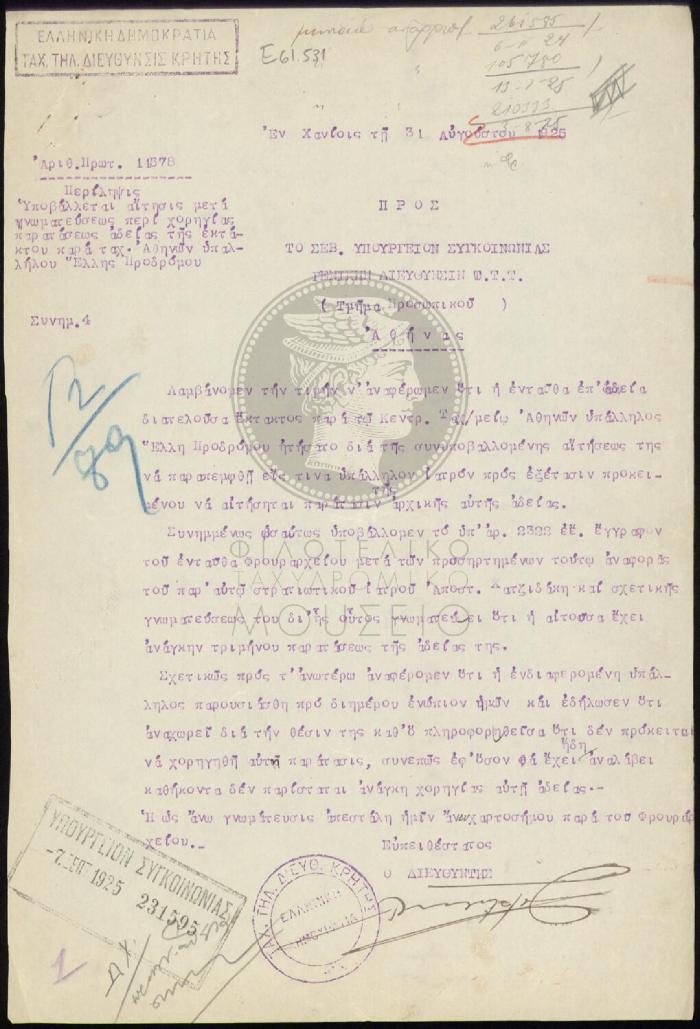 ΕΛΛΗΝΙΚΗ ΔΗΜΟΚΡΑΤΙΑ
ΤΑΧ. ΤΗΛ. ΔΙΕΥΘΥΝΣΙΣ ΚΡΗΤΗΣ
Ε61.531
261585
6-11 24
105780
13-1-25
210333
3-8-25
Ἐν Χανίοις τῇ 31 Αὐγούστου 1925
Ἀριθ.Πρωτ. 11578
Περίληψις
Ὑποβάλλεται αἴτησις μετά
γνωματεύσεως περί χορηγίας
παρατάσεως ἀδείας τῆς ἐκτά-
κτου παρά ταχ. Ἀθηνῶν ὑπαλ-
λήλου Ἕλλης Προδρόμου
Συνημ.4
ΠΡΟΣ
ΤΟ ΣΕΒ. ΥΠΟΥΡΓΕΙΟΝ ΣΥΓΚΟΙΝΩΝΙΑΣ
ΓΕΝΙΚΗΝ ΔΙΕΥΘΥΝΣΙΝ Τ.Τ.Τ.
( Τμῆμα Προσωπικοῦ )
Ἀθήνας
Λαμβάνομεν τήν τιμήν ν'ἀναφέρωμεν ὅτι ἡ ἐνταῦθα ἐπ'ἀδεία
διατελοῦσα ἔκτακτος παρά τῷ Κεντρ. Ταχ/μείῳ Ἀθηνῶν ὑπάλληλος
Ἕλλη Προδρόμου ᾐτήσατο διά τῆς συνυποβαλλομένης αἰτήσεως της
νά παραπεμφθῇ εἰς τινα ὑπάλληλον ἰατρόν πρός ἐξέτασιν προκει-
μένου νά αἰτήσηται παράτασιν τῆς ἀρχικῆς αὐτῆς ἀδείας.
Συνημμένως ὡσαύτως ὑποβάλλομεν τό ὑπ'ἀρ. 2322 ἐ.ἔ. ἔγγραφον
τοῦ ἐνταῦθα Φρουραρχείου μετά τῶν προσηρτημένων τούτῳ ἀναφορᾶς
τοῦ παρ'αὐτῷ στρατιωτικοῦ ἰατροῦ Ἀποστ. Χατζιδάκη καί σχετικῆς
γνωματεύσεώς του δι'ἧς οὗτος γνωματεύει ὅτι ἡ αἰτοῦσα ἔχει
ἀνάγκην τριμήνου παρατάσεως τῆς ἀδείας της.
Σχετικῶς πρός τ'ἀνωτέρω ἀναφέρομεν ὅτι ἡ ἐνδιαφερομένη ὑπάλ-
ληλος παρουσιάσθη πρό διημέρου ἐνώπιον ἡμῶν καί ἐδήλωσεν ὅτι
ἀναχωρεῖ διά τήν θέσιν της καθ'ὅ πληροφορηθεῖσα ὅτι δέν πρόκειται
νά χορηγηθῇ αὐτῇ παράτασις, συνεπῶς ἐφ'ὅσον θά ἔχει ἤδη ἀναλάβει
καθήκοντα δέν παρίσταται ἀνάγκη χορηγίας αὐτῇ ἀδείας.-
Ἡ ὡς ἄνω γνωμάτευσις ἀπεστάλη ἡμῖν ἄνευ χαρτοσήμου παρά τοῦ Φρουραρ-
χείου.-
Εὐπειθέστατος
Ο ΔΙΕΥΘΥΝΤΗΣ
ΥΠΟΥΡΓΕΙΟΝ ΣΥΓΚΟΙΝΩΝΙΑΣ
-7 ΣΕΠ 1925 231595
ΤΑΧ. ΤΗΛ. ΔΙΕΥΘ. ΚΡΗΤΗΣ
ΕΛΛΗΝΙΚΗ
ΔΗΜΟΚΡΑΤΙΑ
ΦΙΛΟΤΕΛΙΚΟ
ΤΑΧΥΔΡΟΜΙΚΟ
ΜΟΥΣΕΙΟ